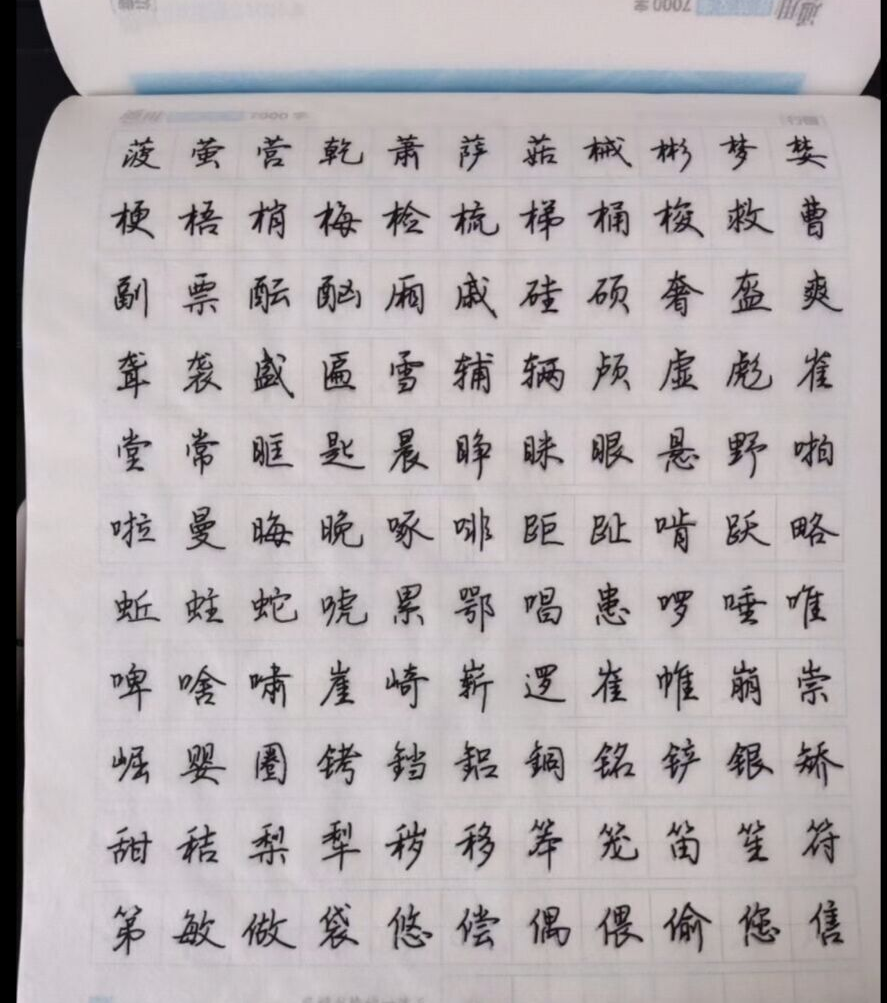 通用 7000字
7000字
菠萤营乾萧萨菇械彬梦婪
梗梧梢梅检梳梯桶梭救曹
副票酝酗厢戚硅硕奢盔爽
聋袭盛匾雪辅辆颅虚彪雀
堂常眶匙晨睁眯眼悬野啪
啦曼晦晚啄啡距趾啃跃略
蚯蛀蛇唬累鄂唱患啰唾唯
啤啥啸崖崎崭逻崔帷崩崇
崛婴圈铐铛铝铜铭铲银矫
甜秸梨犁秽移笨笼笛笙符
第敏做袋悠偿偶偎偷您售